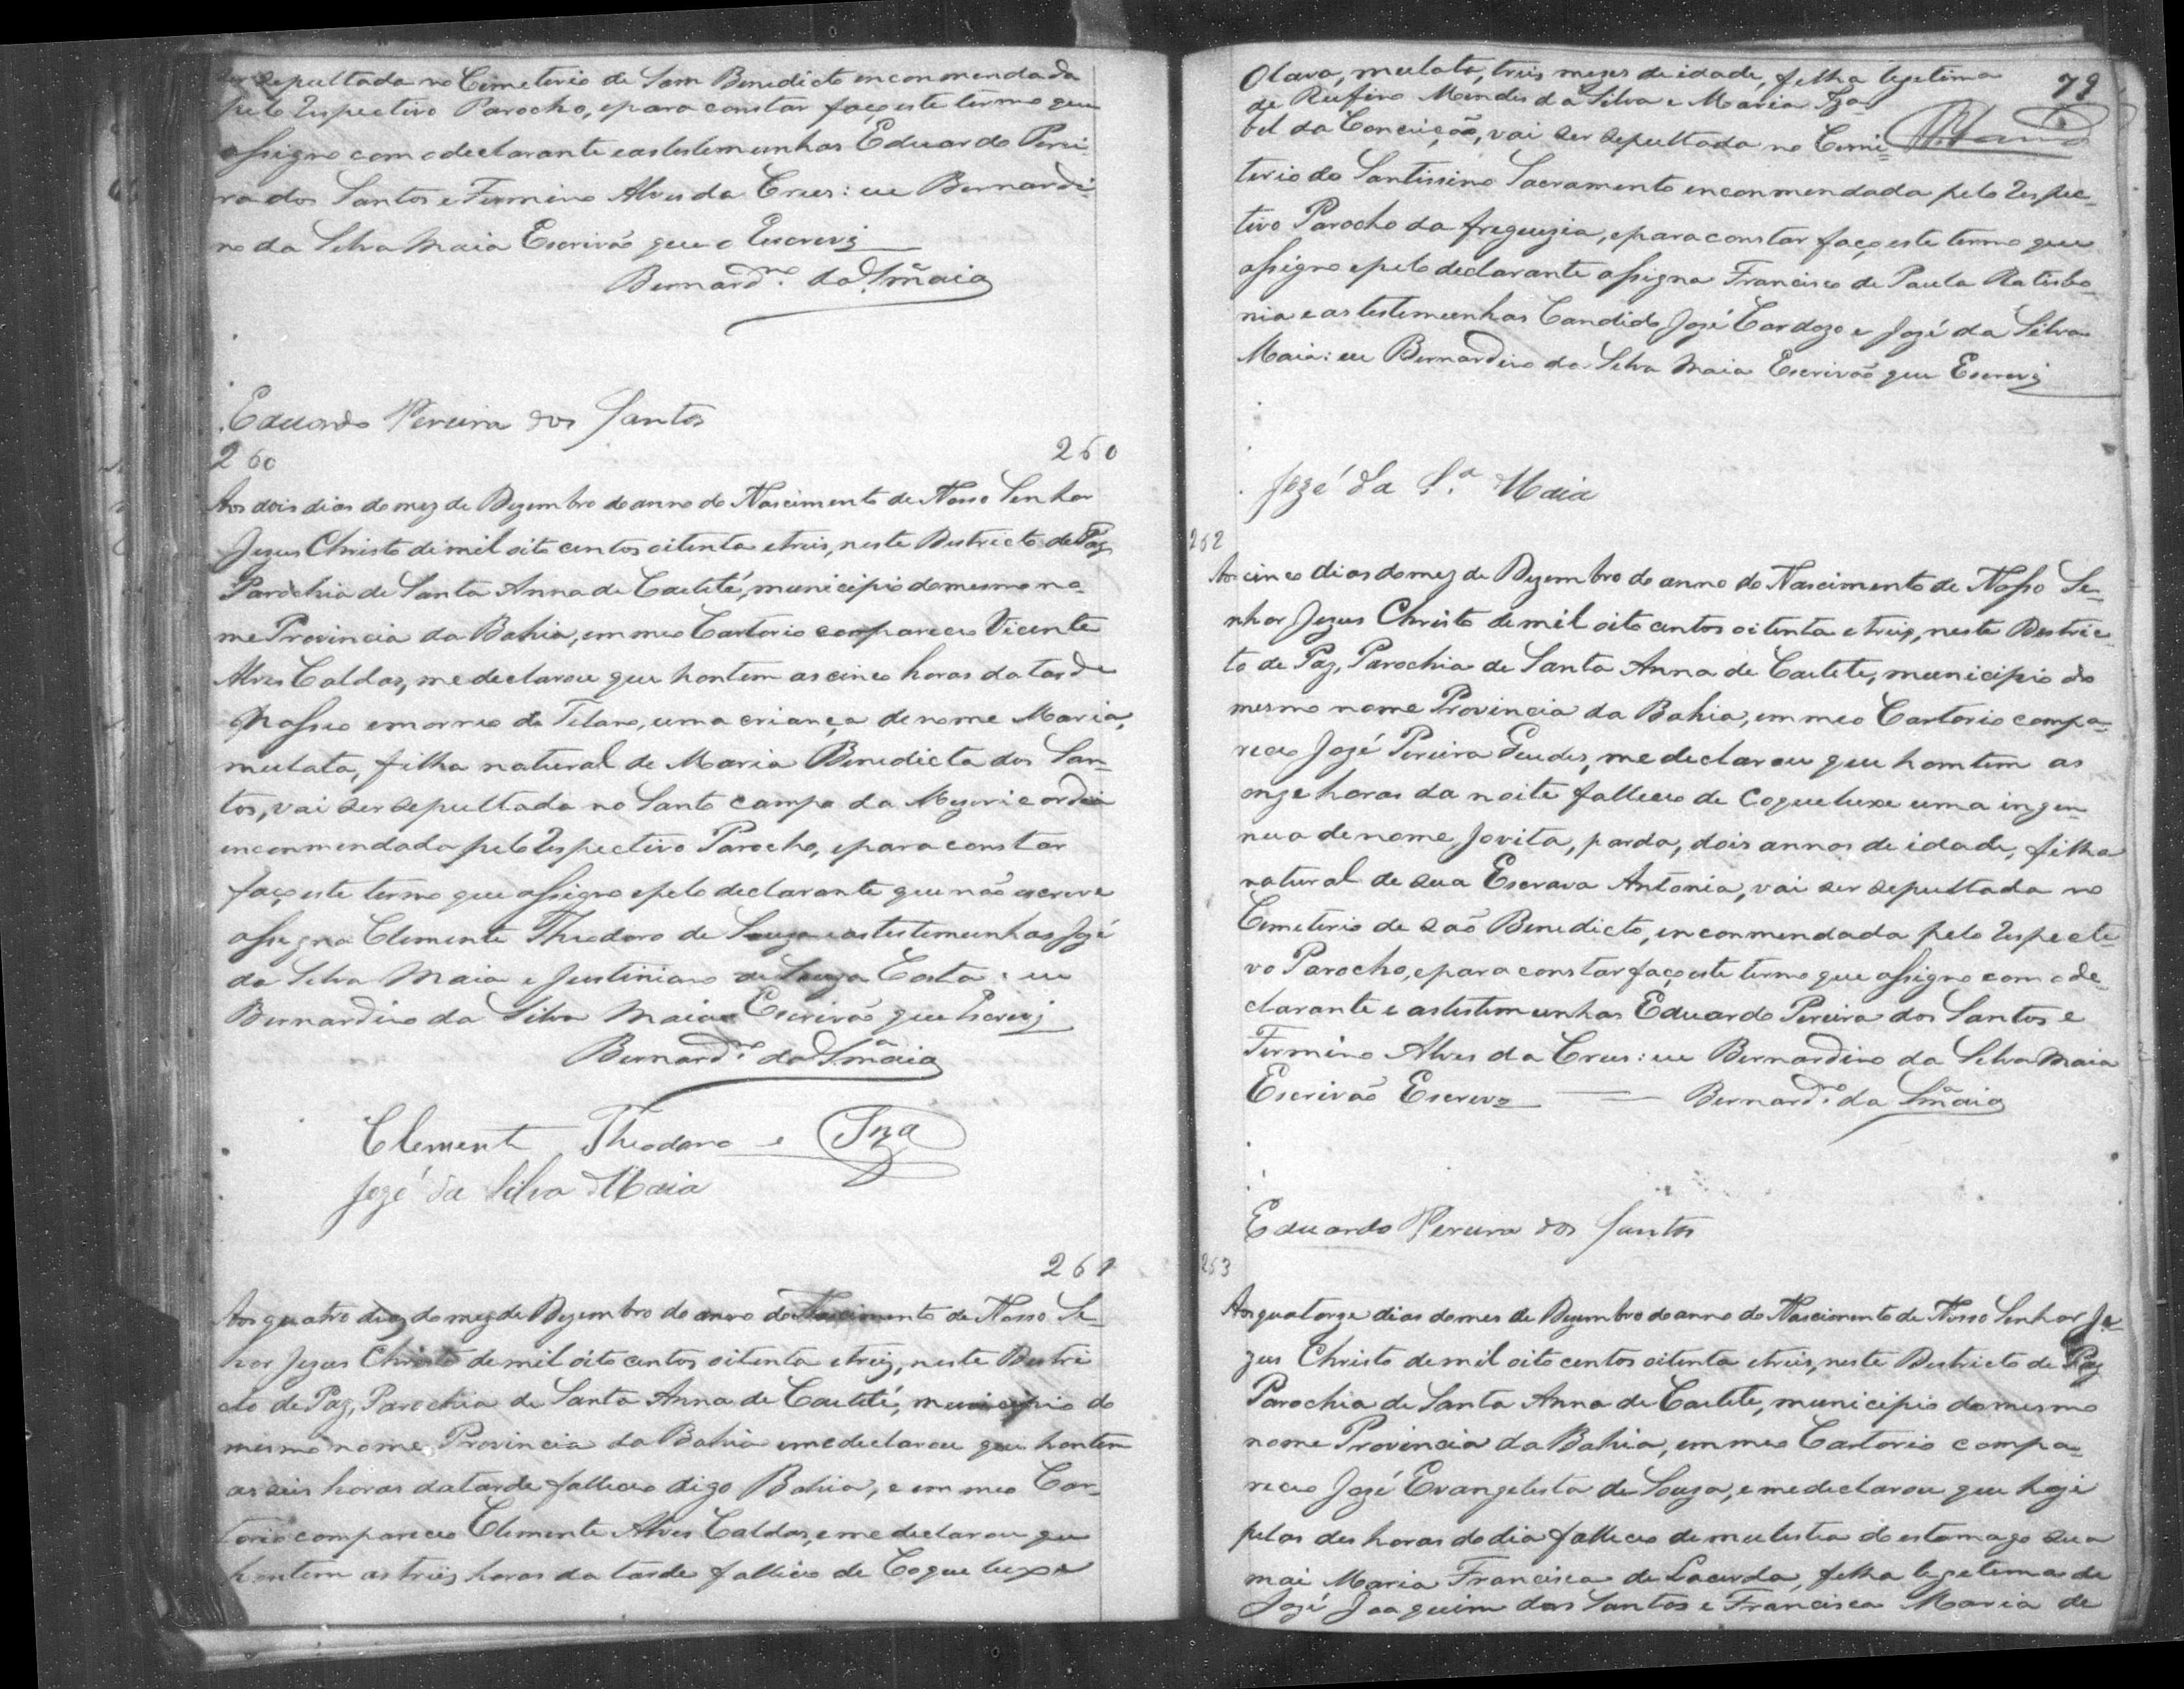 ser sepultada no Cemeterio de Sam Benedicto enconmendada
pelo Respectivo Parocho, e para constar faço este termo que
assigno com o declarante e as testemunhas Eduardo Perei-
ra dos Santos e Fermino Alves da Crus: eu Bernardi-
no da Silva Maia Escrivão que o Escrevi
Bernard.no da S.a Maia
Eduardo Pereira dos Santos
260 260
Aos dois dias do mez de Dezembro do anno do Nascimento de Nosso Senhor
Jezus Christo de mil oito centos oitenta e treis, neste Destricto de Paz
Parochia de Santa Anna de Caeteté, municipio do mesmo no-
me Provincia da Bahia, em meo Cartorio compareceo Vicente
Alves Caldas, me declarou que hontem as cinco horas da tarde
nasseo e morreo de Tetano, uma criança de nome Maria,
mulata, filha natural de Maria Benedicta dos San-
tos, vai ser sepultada no Santo campo da Mezericordia
enconmendada pelo Respectivo Parocho, e para constar
faço este termo que assigno e pelo declarante que não escreve
assigna Clemente Theodoro de Souza e as testemunhas Jozé
da Silva Maia e Justiniano de Souza Costa: eu
Bernardino da Silva Maia Escrivão que Escrevi
Bernard.no da S.a Maia
Clemente Theodoro e Sza
Jozé da Silva Maia
261
Aos quatro dias do mez de Dezembro do anno do Nascimento de Nosso Se-
nhor Jezus Christo de mil oito centos oitenta e treiz, neste Destri
cto de Paz, Parochia de Santa Anna de Caeteté, municipio do
mesmo nome, Provincia da Bahia e me declarou que hontem
as seis horas da tarde falleceo digo Bahia, e em meo Car-
torio compareceo Clemente Alves Caldas, e me declarou que
hontem as treiz horas da tarde falleceo de Coqueluxe
79
Olava, mulata, treis mezes de idade, filha legetima
de Rufino Mendes da Silva e Maria Iza-
bel da Conceição, vai ser sepultada no Cemi-
terio do Santissimo Sacramento enconmendada pelo Respec-
tivo Parocho da freguezia, e para constar faço este termo que
assigno e pelo declarante assigna Francisco de Paula Ratisbo-
nia e as testemunhas Candido Jozé Cardozo e Jozé da Silva
Maia: eu Bernardino da Silva Maia Escrivão que Escrevi
Jozé da S.a Maia
262
Aos cinco dias do mez de Dezembro do anno do Nascimento de Nosso Se-
nhor Jezus Christo de mil oito centos oitenta e treis, neste Destric-
to de Paz, Parochia de Santa Anna de Caetete, municipio do
mesmo nome Provincia da Bahia, em meo Cartorio compa-
receo Jozé Pereira Guedes, me declarou que homtem as
onze horas da noite falleceo de Coqueluxe uma ingen
nua de nome Jovita, parda, dois annos de idade, filha
natural de sua Escrava Antonia, vai ser sepultada no
Cemeterio de são Benedicto, enconmendada pelo Respecti-
vo Parocho, e para constar faço este termo que assigno com o de-
clarante e as testemunhas Eduardo Pereira dos Santos e
Fermino Alves da Crus: eu Bernardino da Silva Maia
Escrivão Escrevi Bernard.no da S.a Maia
Eduardo Pereira dos Santos
263
Aos quatorze dias do mes de Dezembro do anno do Nascimento de Nosso Senhor Je-
zus Christo de mil oito centos oitenta e treis, neste Destricto de Paz
Parochia de Santa Anna de Caetete, municipio do mesmo
nome Provincia da Bahia, em meo Cartorio compa-
receo Jozé Evangelista de Souza, e me declarou que hoje
pelas des horas do dia falleceo de mulestia do estomago sua
mai Maria Francisca de Lacerda, filha legetima de
Jozé Joaquim dos Santos e Francisca Maria de